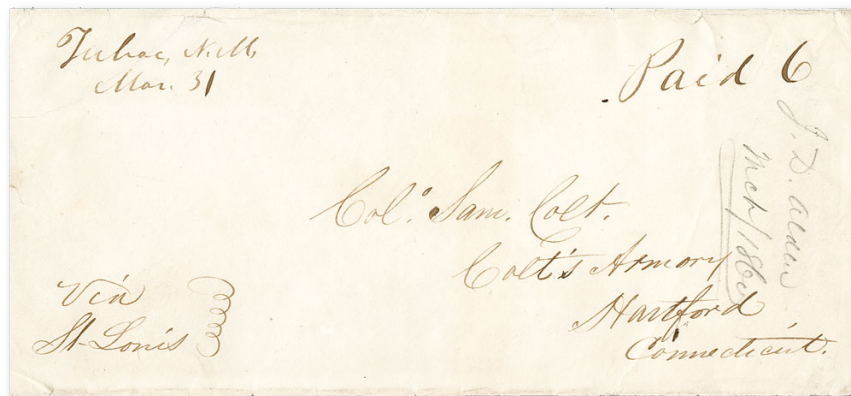 Tubac, N.M.
Mar. 31
Paid 6
J. D. Alden
Mch/1860
Col. Sam. Colt.
Colt's Armory
Hartford
Connecticut.
Via
St. Louis